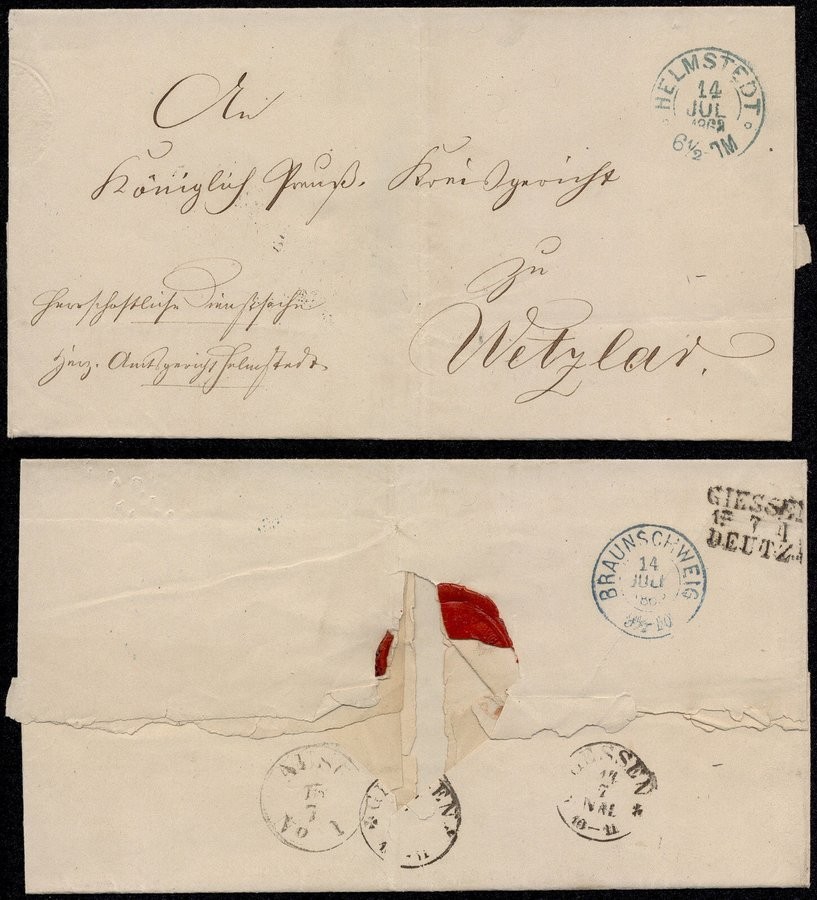 An
Königlich Preuß. Kreisgericht
zu
Wetzlar.
Herrschaftliche Dienstsache
Herz. Amtsgericht Helmstedt.
HELMSTEDT
14
JUL
1862
6½-7M
GIESSEN
7
DEUTZ
BRAUNSCHWEIG
14
JULI
9½-10
AUSG
7
No 1
EN
GIESSEN
14
7
NM
10-11